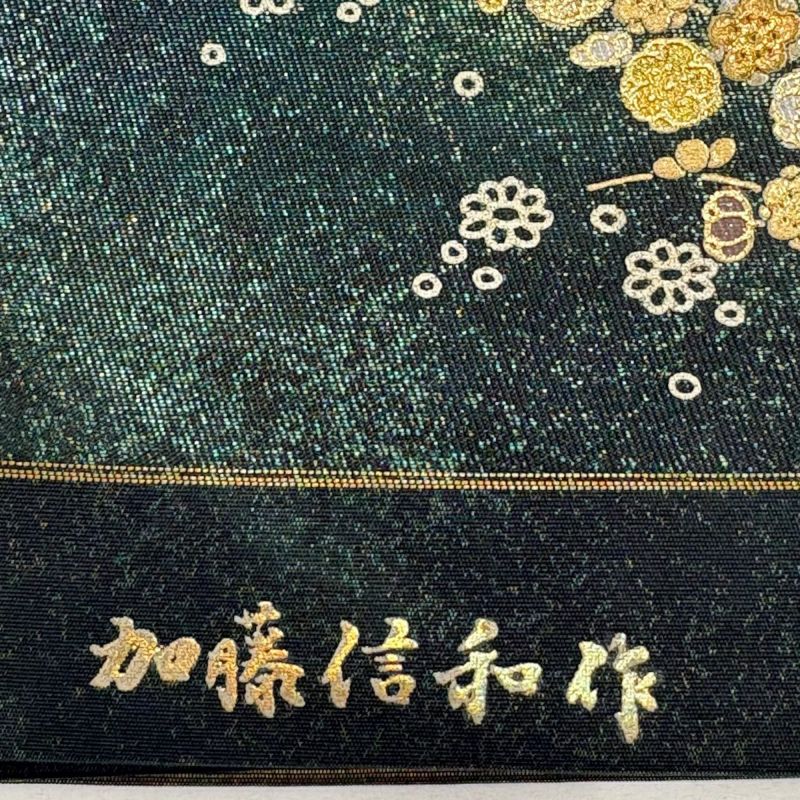 加藤信和作